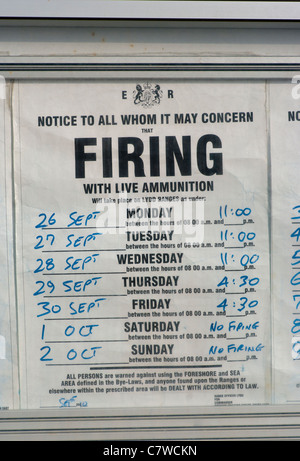 E R
NOTICE TO ALL WHOM IT MAY CONCERN
THAT
FIRING
WITH LIVE AMMUNITION
Will take place on LYDD RANGES as under:
26 SEPT MONDAY 11:00
between the hours of 08 00 a.m. and p.m.
27 SEPT TUESDAY 11:00
between the hours of 08 00 a.m. and p.m.
28 SEPT WEDNESDAY 11:00
between the hours of 08 00 a.m. and p.m.
29 SEPT THURSDAY 4:30
between the hours of 08 00 a.m. and p.m.
30 SEPT FRIDAY 4:30
between the hours of 08 00 a.m. and p.m.
1 OCT SATURDAY NO FIRING
between the hours of 08 00 a.m. and p.m.
2 OCT SUNDAY NO FIRING
between the hours of 08 00 a.m. and p.m.
ALL PERSONS are warned against using the FORESHORE and SEA
AREA defined in the Bye-Laws, and anyone found upon the Ranges or
elsewhere within the prescribed area will be DEALT WITH ACCORDING TO LAW.
alamy
C7WCKN
www.alamy.com